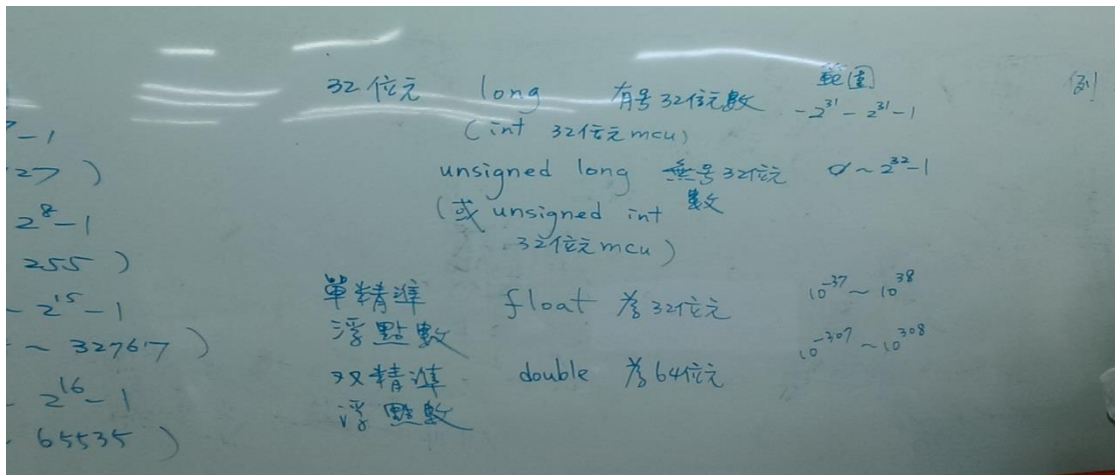 -1
27 )
2⁸-1
255 )
- 2¹⁵-1
~ 32767 )
2¹⁶-1
65535 )
範圍
32位元 long 有号32位元數 -2³¹ - 2³¹-1
(int 32位元mcu)
unsigned long 無号32位元數 0 ~ 2³²-1
(或 unsigned int
32位元mcu)
單精準 float 為32位元 10⁻³⁷ ~ 10³⁸
浮點數
双精準 double 為64位元 10⁻³⁰⁷ ~ 10³⁰⁸
浮點數